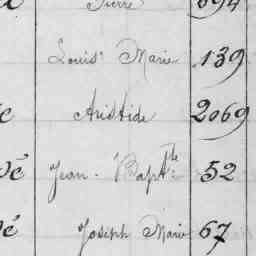 Pierre 694
Louis Marie 139
Aristide 2069
Jean-Bapt.te 52
Joseph Marie 67